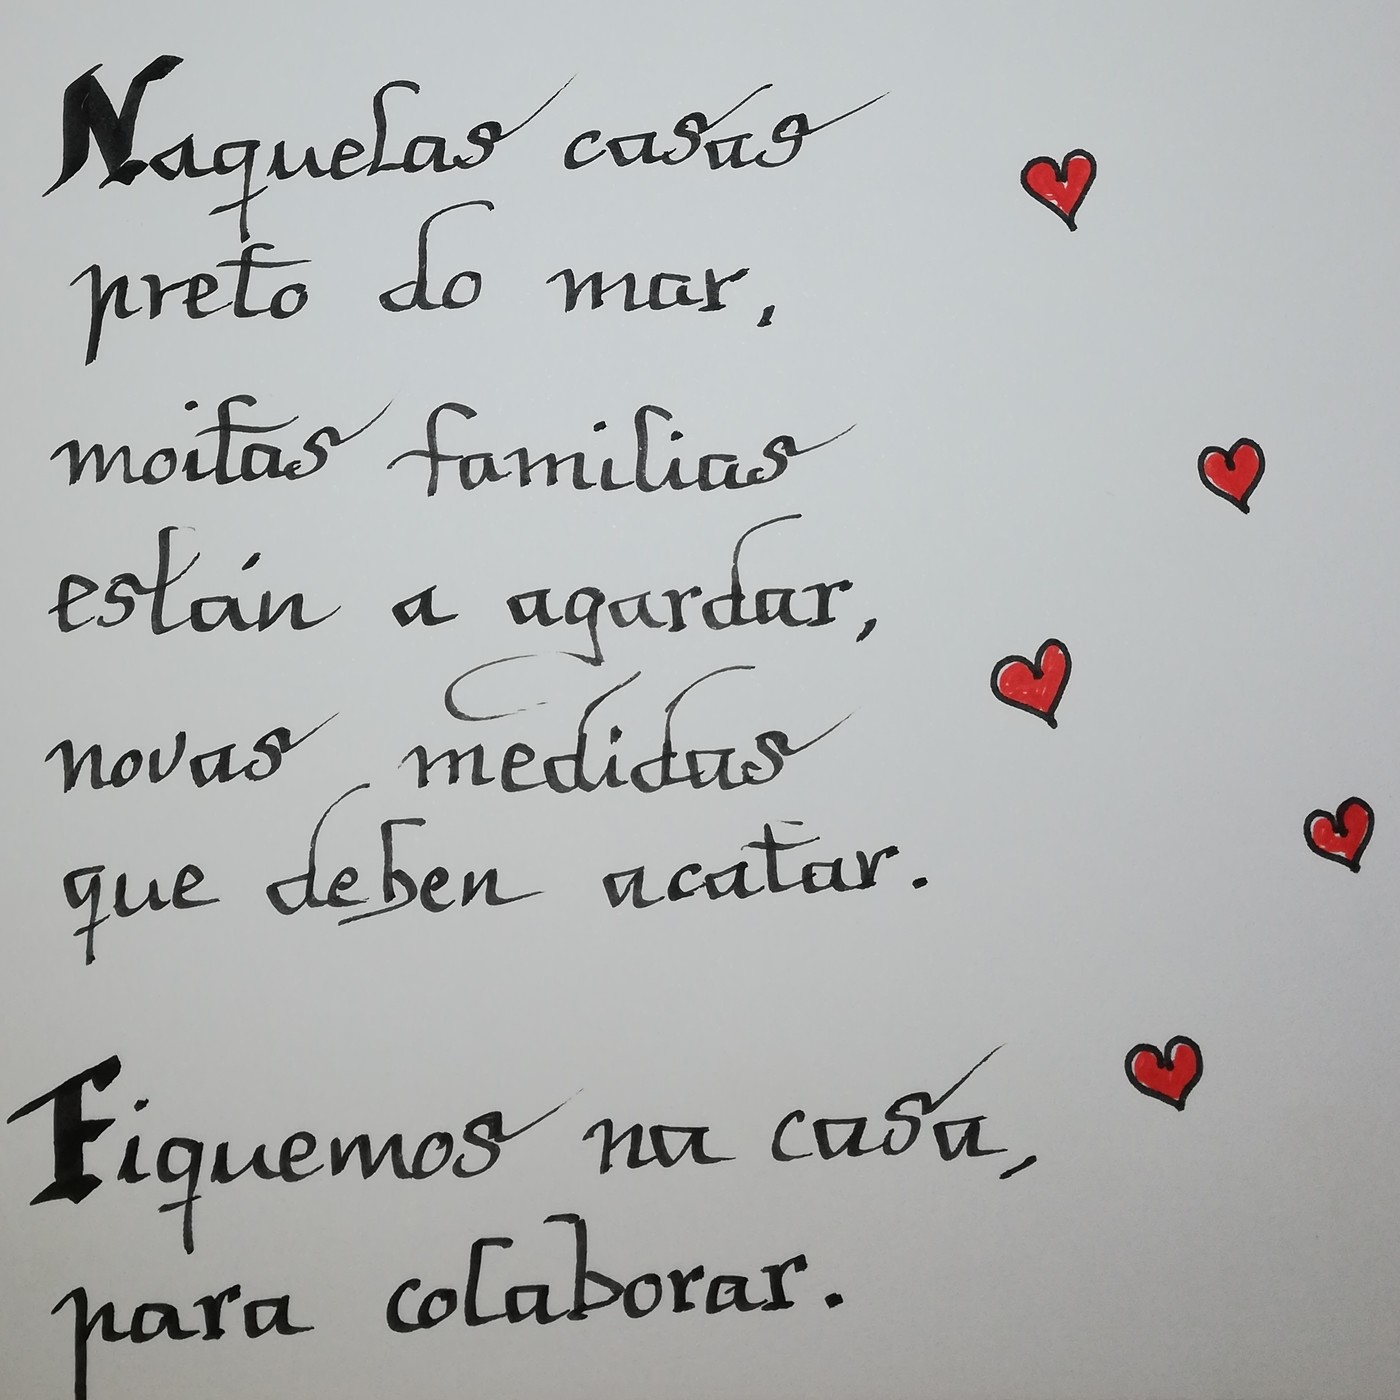 Naquelas casas
preto do mar,
moitas familias
están a agardar,
novas medidas
que deben acatar.
Fiquemos na casa,
para colaborar.